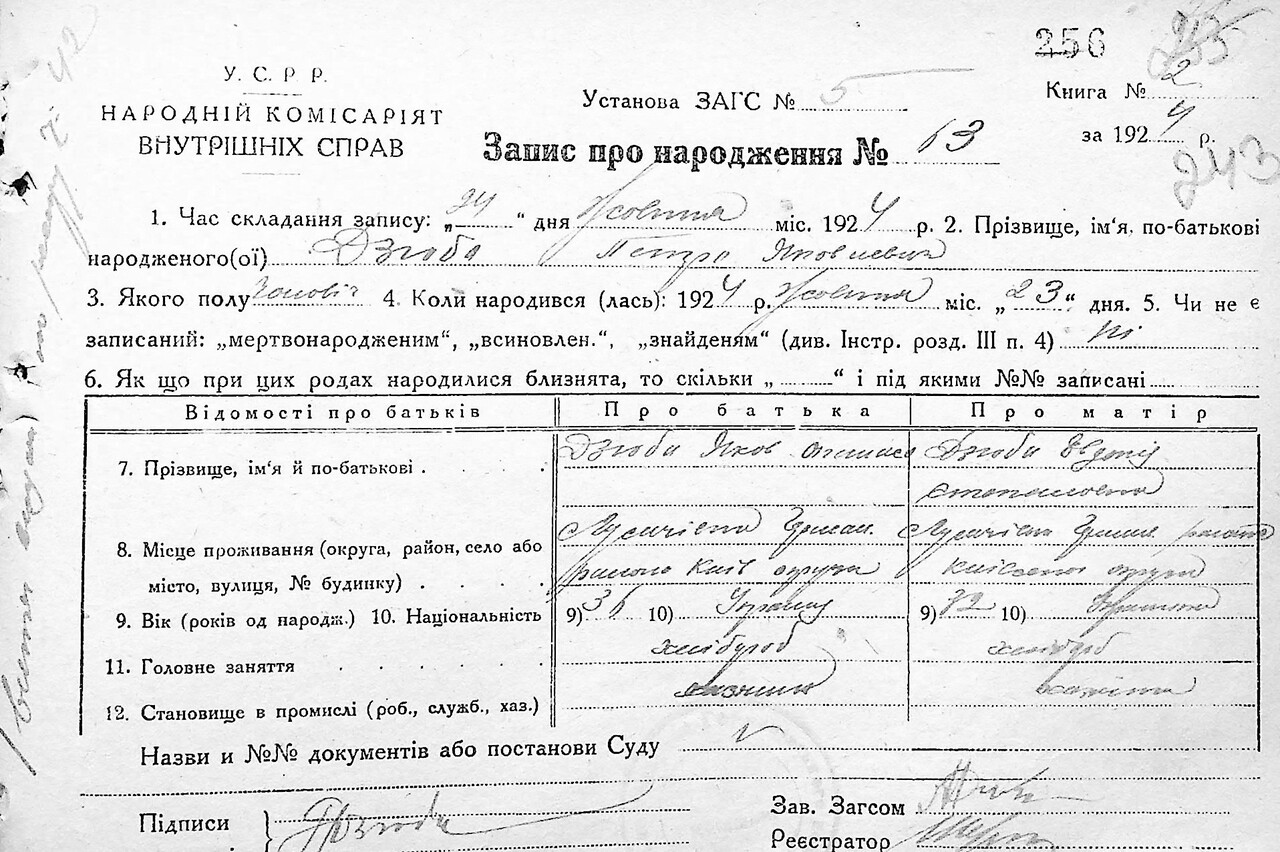 256
У. С. Р. Р.
НАРОДНІЙ КОМІСАРІЯТ
ВНУТРІШНІХ СПРАВ
Установа ЗАГС № 5
Книга № 2
за 1924 р.
Запис про народження № 13
243
1. Час складання запису: „24“ дня Жовтня міс. 1924 р. 2. Прізвище, ім'я, по-батькові
народженого(ої) Дзюба Петро Яковлевич
3. Якого полу 4. Коли народився (лась): 1924 р. Жовтня міс. „23“ дня. 5. Чи не є
записаний: „мертвонародженим“, „всиновлен.“, „знайденям“ (див. Інстр. розд. III п. 4) ні
6. Як що при цих родах народилися близнята, то скільки „ “ і під якими №№ записані
Відомості про батьків Про батька Про матір
7. Прізвище, ім'я й по-батькові Дзюба Яков Дзюба Євдокія
Степановна
8. Місце проживання (округа, район, село або
місто, вулиця, № будинку) району Київ округи Київської округи
9. Вік (років од народж.) 10. Національність 9) 36 10) 9) 32 10)
11. Головне заняття хлібороб хлібороб
12. Становище в промислі (роб., служб., хаз.)
Назви и №№ документів або постанови Суду
Підписи } Дзюба
Зав. Загсом
Реєстратор